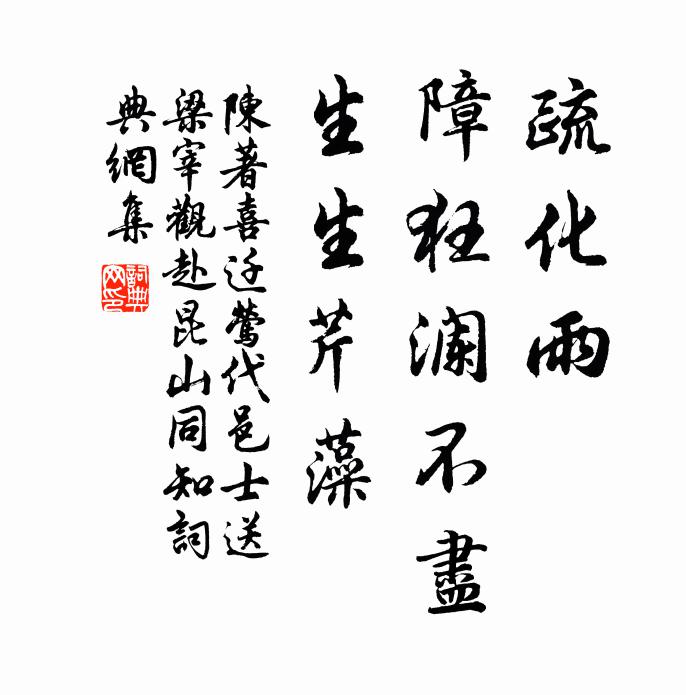 疏化雨
障狂瀾不盡
生生芹藻
陳著喜迁鶯代邑士送
梁宰觀赴昆山同知詞
典網集
詞典
网印